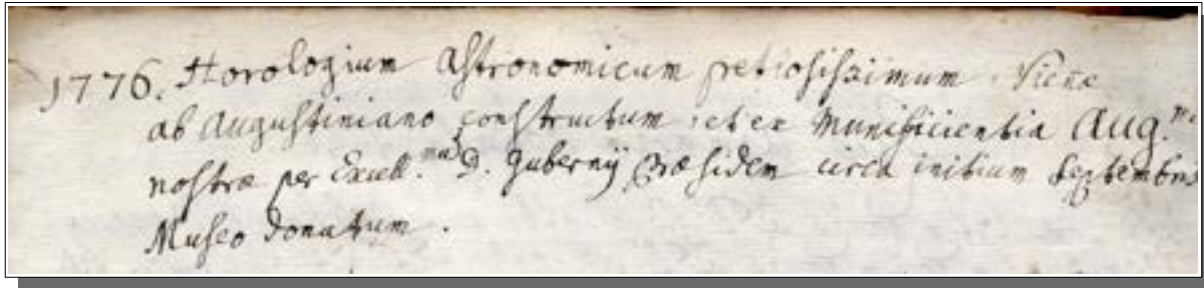 1776. Horologium Astronomicum pretiosissimum. Vieñæ
ab Augustiniano constructum, et ex Munificientia Aug.mæ
nostræ per Excell.mum D. Gubernij Præsidem circa initium Septembris
Museo donatum.